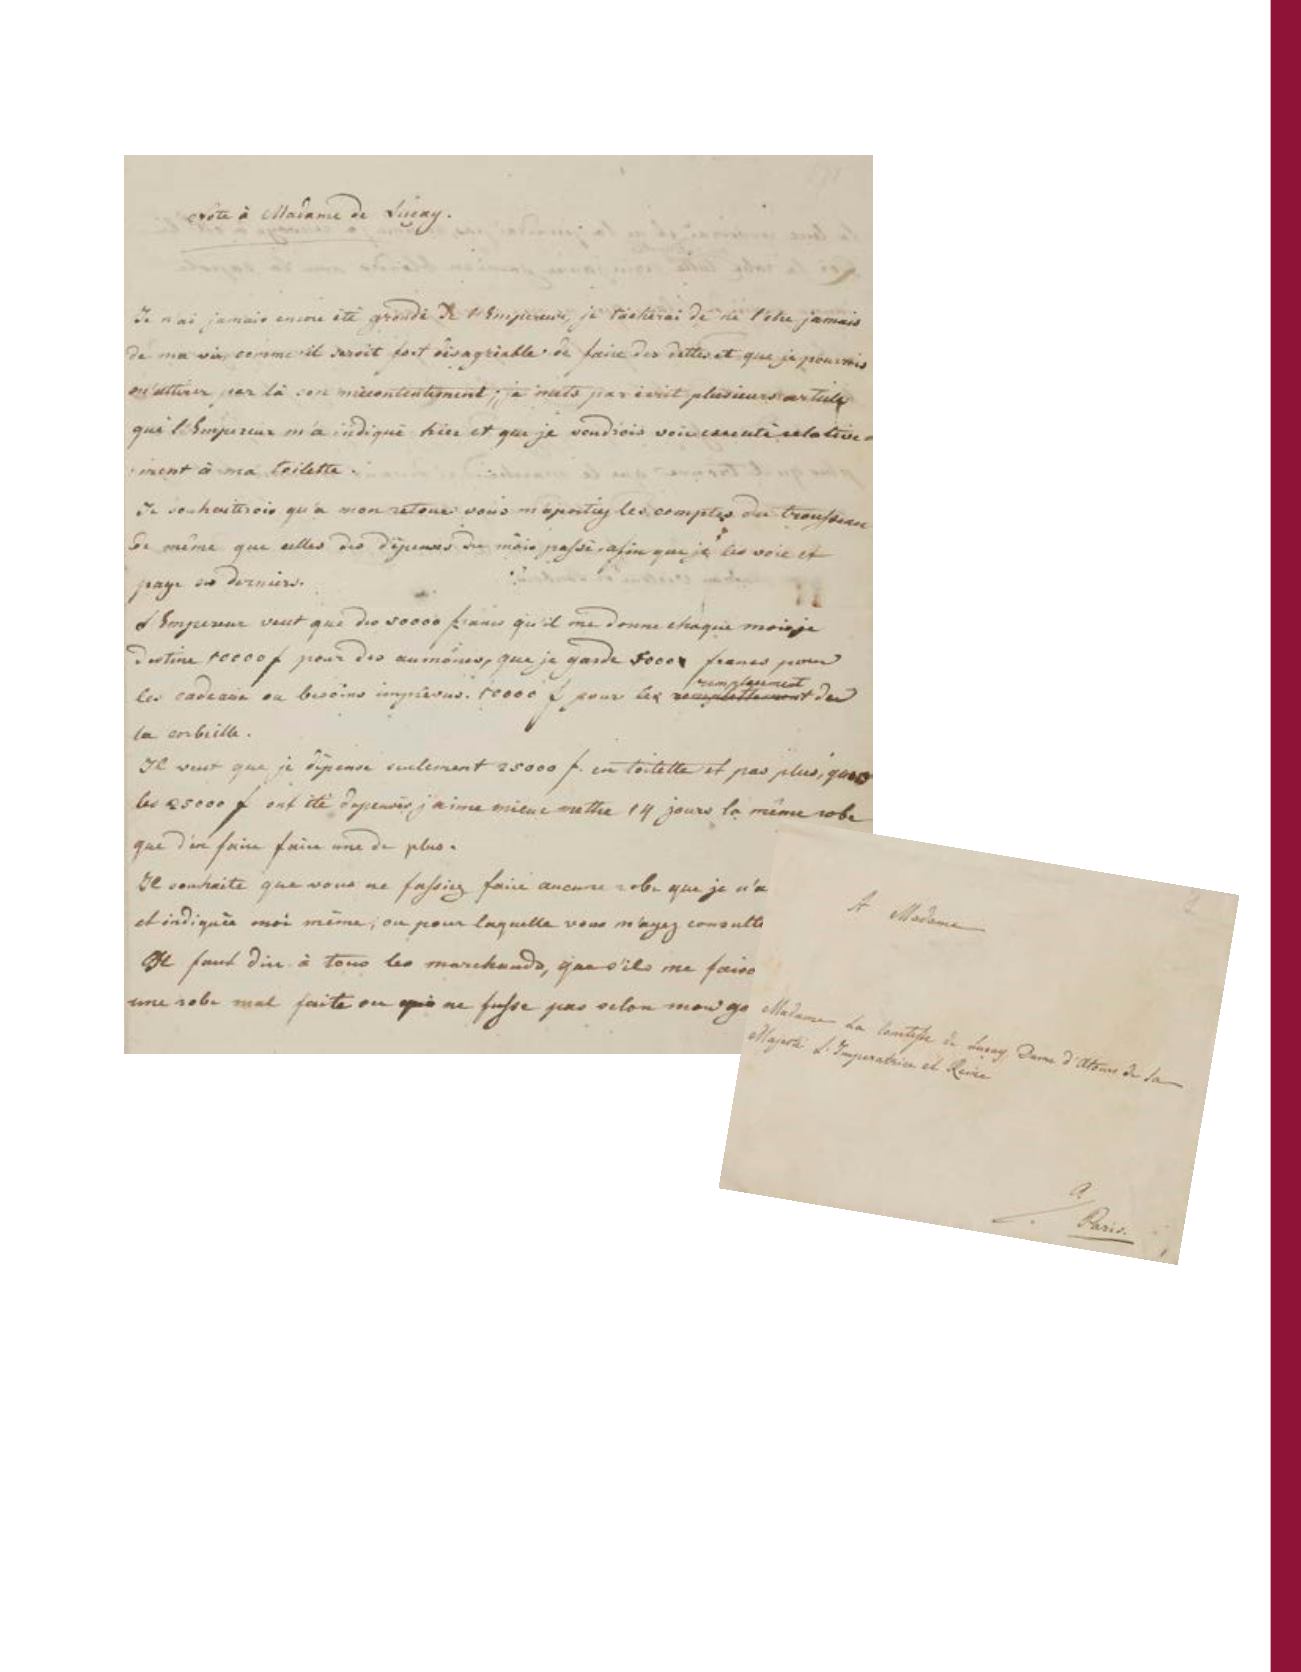 Nôte à Madame de Luçay.
Je n'ai jamais encore été grondé de l'Empereur, je tacherai de ne l'etre jamais
de ma vie, comme il seroit fort désagréable de faire des dettes et que je pourrois
m'attirer par là son mécontentement; je mets par écrit plusieurs article
que l'Empereur m'a indiqué hier et que je voudrois voir executé relative-
ment à ma toilette.
Je souhaiterois qu'a mon retour vous m'aportiez les comptes du trousseau
de même que celles des dépenses du mois passé, afin que je les voie et
paye ces derniers.
L'Empereur veut que des 50000 francs qu'il me donne chaque mois je
destine 10000 f pour des aumônes, que je garde 5000 francs pour
les cadeaux ou besoins imprévus. 10000 f pour les remplacement de
la corbeille.
Il veut que je dépense seulement 25000 f. en toilette et pas plus, quand
les 25000 f ont été dépensés, j'aime mieux mettre 14 jours la même robe
que d'en faire faire une de plus.
Il souhaite que vous ne fassiez faire aucune robe que je n'a
et indiquée moi même, ou pour laquelle vous m'ayez consulté
Il faut dire à tous les marchands, que s'ils me faiso
une robe mal faite ou qui ne fusse pas selon mon go
A Madame
Madame La Comtesse de Luçay Dame d'Atours de Sa
Majesté L'Imperatrice et Reine
à
Paris.